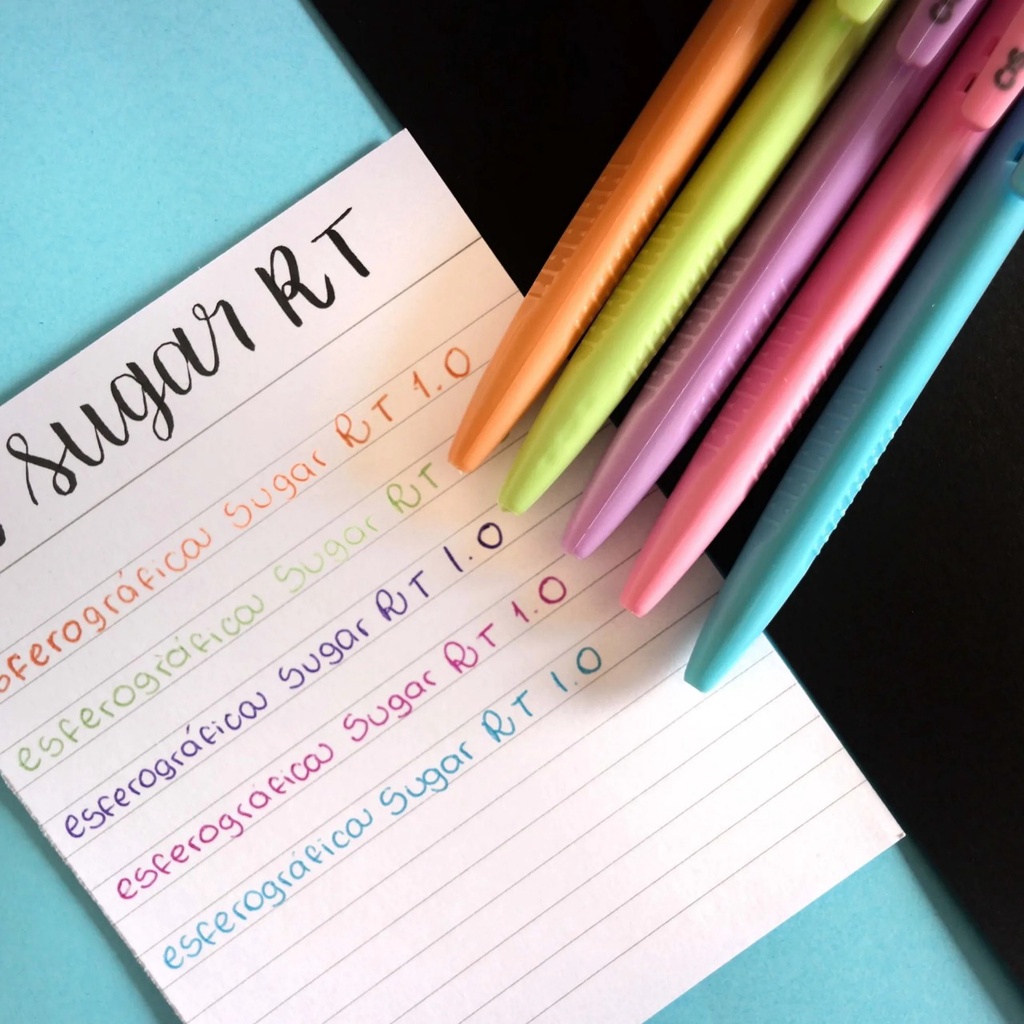 Sugar RT
esferográfica Sugar RT 1.0
esferográfica Sugar RT
esferográfica Sugar RT 1.0
esferográfica Sugar RT 1.0
esferográfica Sugar RT 1.0